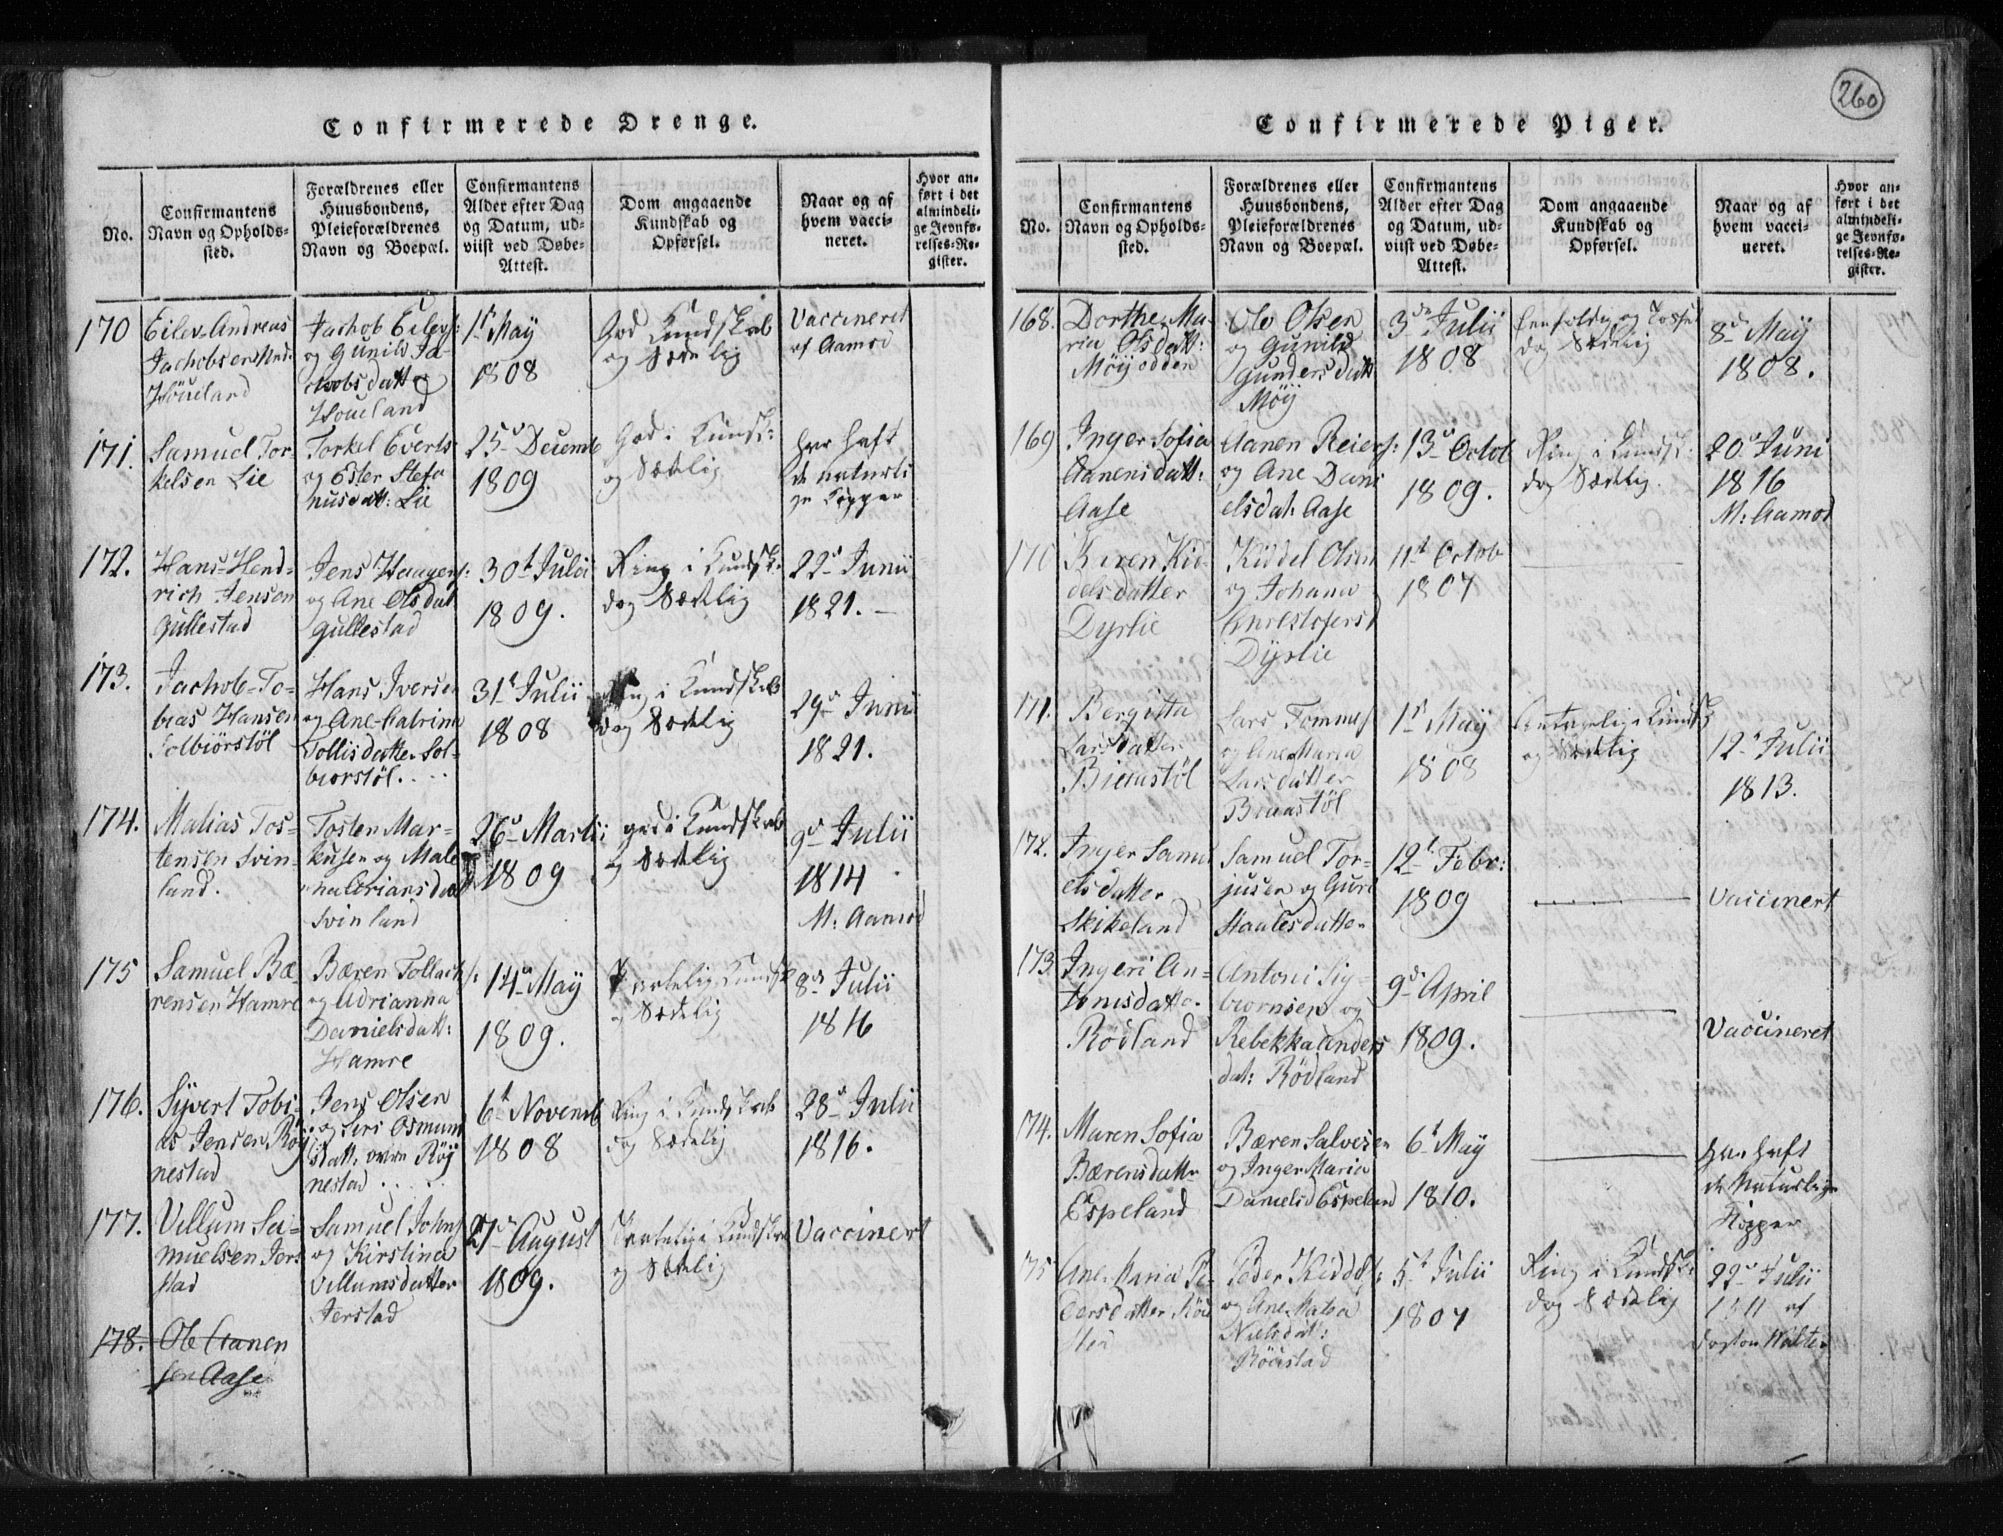 260
Confirmerede Drenge.
No.
Confirmantens
Navn og Opholds-
sted.
Forældrenes eller
Huusbondens,
Pleieforældrenes
Navn og Boepæl.
Confirmantens
Alder efter Dag
og Datum, ud-
viist ved Døbe-
Attest.
Dom angaaende
Kundskab og
Opførsel.
Naar og af
hvem vacci-
neret.
Hvor an-
ført i det
almindeli-
ge Jevnfø-
relses-Re-
gister.
170
Eilev Andreas
Jachobsen
Höueland
Jachob Eilevs:
og Gunild Ja-
chobsdatter
Houeland
1st May
1808
God Kundskab
og Sædelig
Vaccineret
af Aamod
171.
Samuel Tor
kelsen Lie
Torkel Everts
og Ester Stefa
nusdatt: Lie
25de Decemb
1809
God i Kunds:
og Sædelig
har haft
de naturli
ge Kopper
172.
Hans Hend-
rich Jensen
Gullestad
Jens Haagens:
og Ane Olsdat
Gullestad
30t Julii
1809.
Ring i Kundsk.
dog Sædelig
22de Junii
1821.
173.
Jachob To-
bias Hansen
Solbiörstöl
Hans Iversen
og Ane Catrina
Tollisdatter Sol-
biorstöl.
31t Julii
1808
Ring i Kundskab
dog Sædelig
29de Junii
1821.
174.
Matias Tos-
tensen Svin-
land.
Tosten Mar-
kusen og Male
na
Svinland
26de Martii
1809
god i Kundskab
og Sædelig
9de Julii
1814
M: Aamod
175
Samuel Bæ
rensen Hamre
Bæren Tollachs:
og Adrianna
Danielsdatt:
Hamre
14de May
1809.
Kundsk
og Sædelig
8de Julii
1816
176.
Syvert Tobi-
as Jensen Röy
nestad
Jens Olsen
og Siri Osmun
datt: ovre Röy
nestad
6t Novemb
1808
Ring i Kundskab
dog Sædelig
28de Julii
1816.
177.
Villum Sa-
muelsen Jers
stad
Samuel Johns
og Kirstina
Villumsdatter
Jerstad
27de August
1809.
i Kundskab
og Sædelig
Vaccinert
178.
Ole Aanen
sen Aase
Confirmerede Piger.
No.
Confirmantens
Navn og Opholds-
sted.
Forældrenes eller
Huusbondens,
Pleieforældrenes
Navn og Boepæl.
Confirmantens
Alder efter Dag
og Datum, ud-
viist ved Døbe-
Attest.
Dom angaaende
Kundskab og
Opførsel.
Naar og af
hvem vacci-
neret.
Hvor an-
ført i det
almindeli-
ge Jevnfø-
relses-Re-
gister.
168.
Dorthe Ma-
ria Olsdatt:
Möyodden
Ole Olsen
og Gunild
Gundersdatt
Möy
3de Julii
1808
Eenfoldig og
dog Sædelig
8de May
1808.
169
Inger Sofia
Aanensdatt:
Aase
Aanen Reiers:
og Ane Dani
elsdat: Aase
13de Octob
1809.
Ring i Kundsk:
dog Sædelig.
20de Juni
1816
M: Aamod
170
Karen Kid-
delsdatter
Dyrlie
Kiddel Olsen
og Johana
Christofersd
Dyrlie
11t Octob
1807
171.
Bergitta
Larsdatter
Lars Tommes
og Ane Maria
Larsdatter
1st May
1808
Antagelig i Kundsk
og Sædelig
12de Julii
1813.
172.
Inger Samu
elsdatter
Skikeland
Samuel Tor-
jusen og Guri
Staalesdatter
12t Febr:
1809
Vaccinert
173.
Ingeri An-
tonisdatter
Rödland
Antoni Sig-
biornsen og
Rebekka Anders
dat: Rödland
9de April
1809.
Vaccineret
174.
Maren Sofia
Bærensdatter
Espeland
Bæren Salvesen
og Inger Maria
Danielsd Espeland
6t May
1810.
har haft
de Naturlige
Kopper
175
Ane Maria Pe-
dersdatter
Peder Kiddels:
og Ane Malea
Nielsdat:
Röiestad
5t Julii
1807
Ring i Kundsk:
dog Sædelig
22de Julii
1811 af